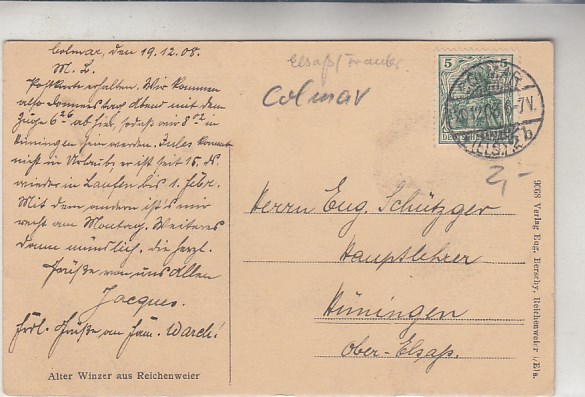 Colmar, den 19.12.08.
M. L.
Postkarte erhalten. Wir kommen
also Donnerstag Abend mit dem
Zuge 6 26 ab hier, sodaß wir 8 02 in
Hüningen sein werden. Jules kommt
nicht in Urlaub, er ist seit 15. ds
wieder in Laufen bis 1. Febr.
Mit dem andern ist's mir
recht am Montag. Weiteres
dann mündlich, die herzl.
Grüße von uns Allen
Jacques.
frdl. Grüße an Fam. Warch!
Alter Winzer aus Reichenweier
Elsaß/Frankr
Colmar
5
5
COLMAR
6-7V.
b
(ELS.)
2,-
Herrn Eug. Schützger
Hauptlehrer
Hüningen
Ober-Elsaß.
9068 Verlag Eug. Berschy, Reichenweier i/Els.